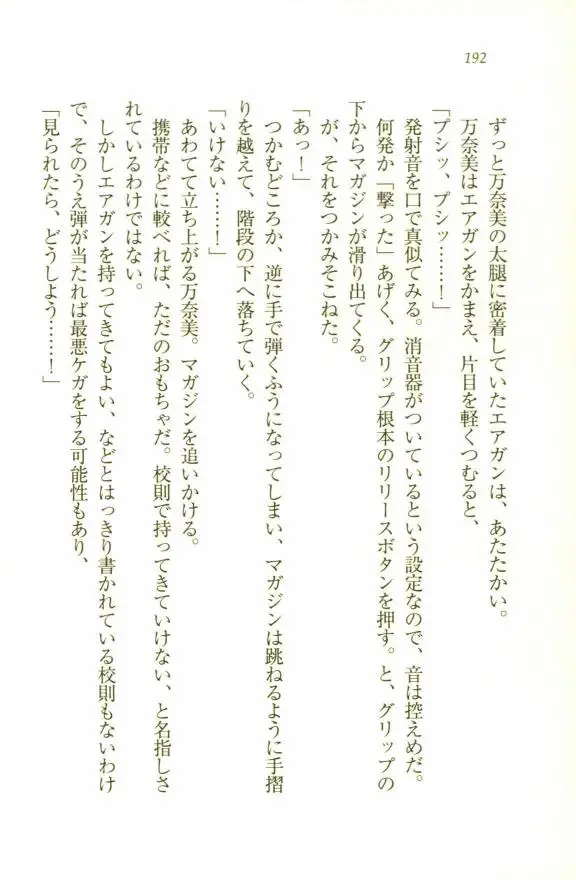 192
ずっと万奈美の太腿に密着していたエアガンは、あたたかい。
万奈美はエアガンをかまえ、片目を軽くつむると、
「プシッ、プシッ……！」
発射音を口で真似てみる。消音器がついているという設定なので、音は控えめだ。
何発か「撃った」あげく、グリップ根本のリリースボタンを押す。と、グリップの
下からマガジンが滑り出てくる。
が、それをつかみそこねた。
「あっ！」
つかむどころか、逆に手で弾くふうになってしまい、マガジンは跳ねるように手摺
りを越えて、階段の下へ落ちていく。
「いけない……！」
あわてて立ち上がる万奈美。マガジンを追いかける。
携帯などに較べれば、ただのおもちゃだ。校則で持ってきていけない、と名指しさ
れているわけではない。
しかしエアガンを持ってきてもよい、などとはっきり書かれている校則もないわけ
で、そのうえ弾が当たれば最悪ケガをする可能性もあり、
「見られたら、どうしよう……！」